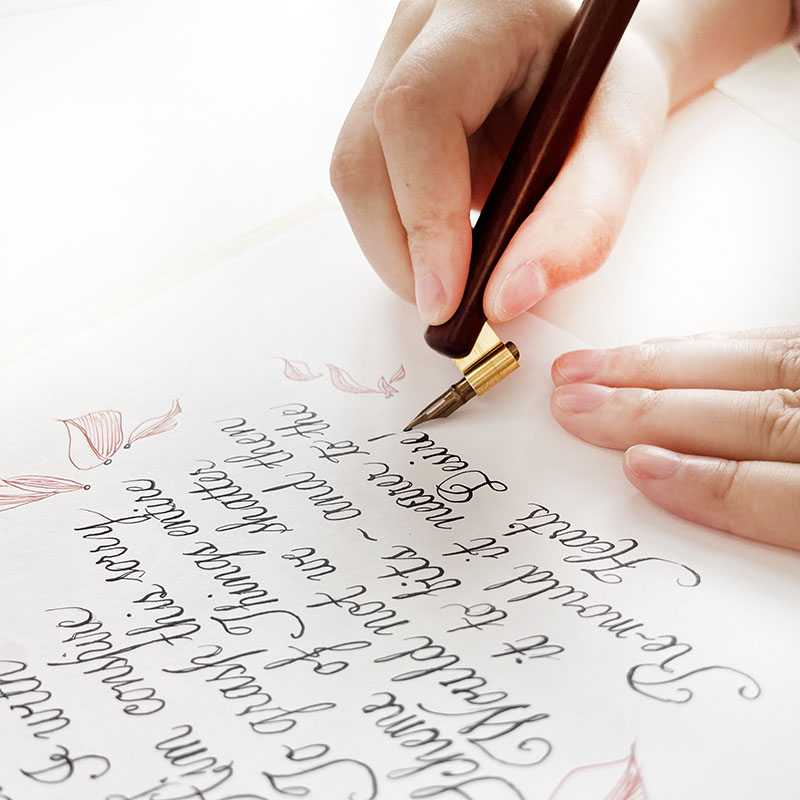 I with
im conspire
To grasp this sorry
Scheme of Things entire
Would not we shatter
it to bits ~ and then
Re-mould it nearer to the
Hearts Desire!